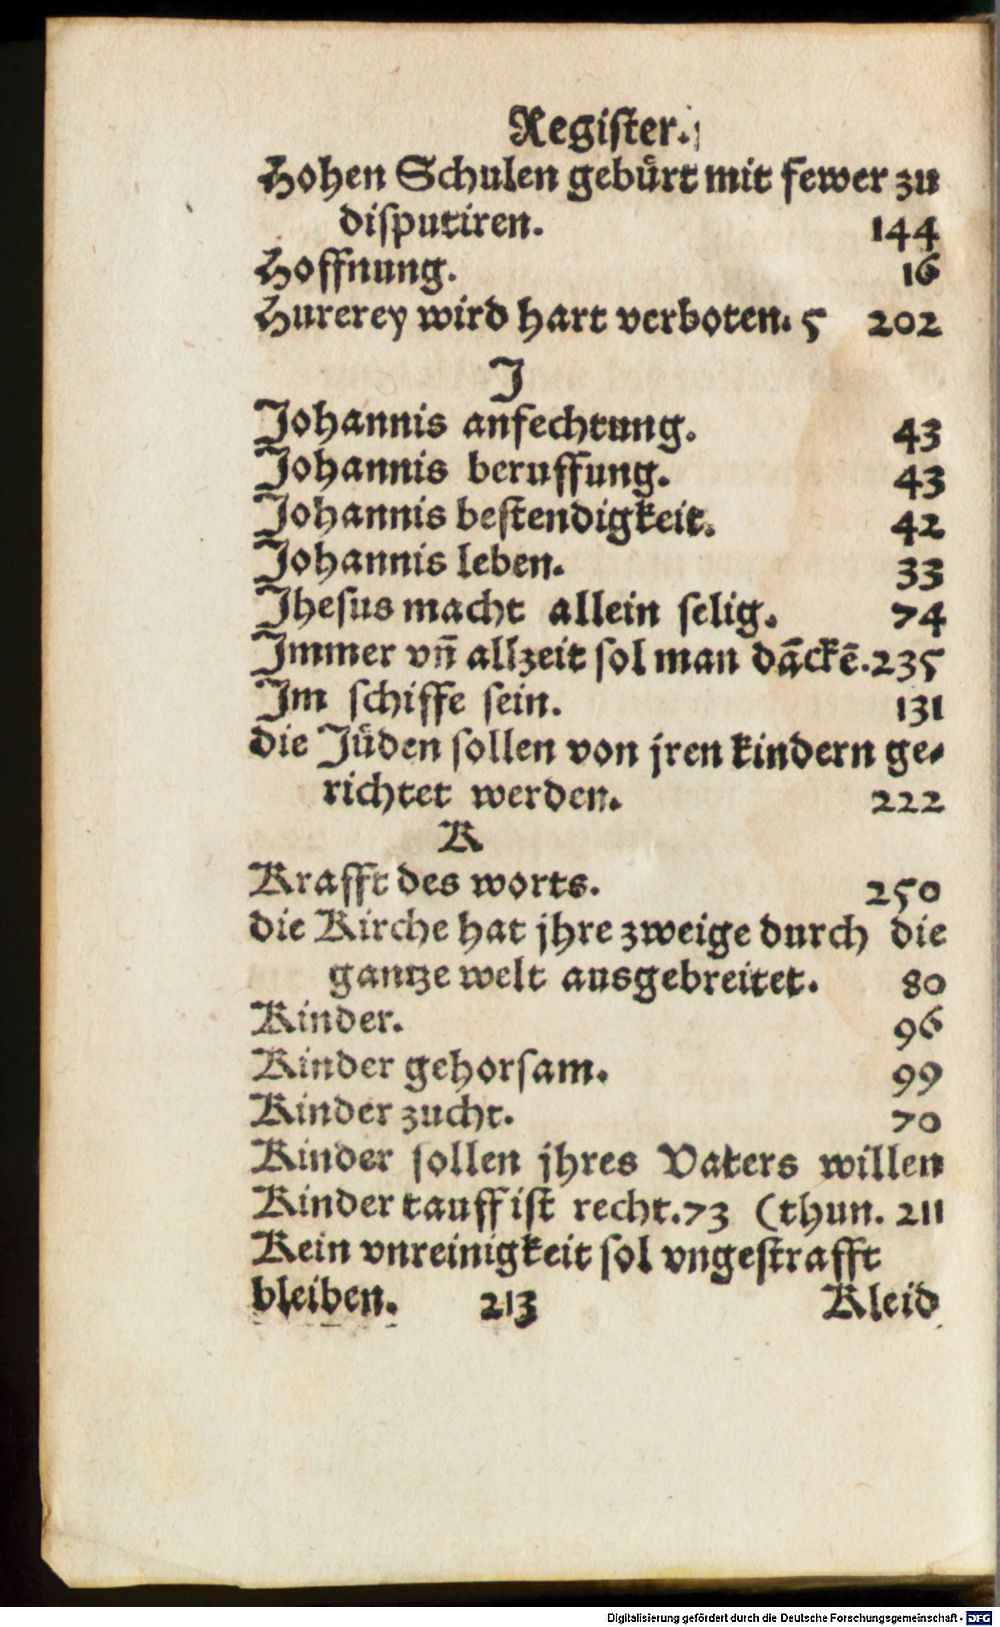 Register.
Hohen Schulen gebuͤrt mit fewer zu
disputiren. 144
Hoffnung. 16
Hurerey wird hart verboten. 5 202
J
Johannis anfechtung. 43
Johannis beruffung. 43
Johannis bestendigkeit. 42
Johannis leben. 33
Jhesus macht allein selig. 74
Jmmer vn̄ allzeit sol man dāckē. 235
Jm schiffe sein. 131
die Juͤden sollen von jren kindern ge⸗
richtet werden. 222
K
Krafft des worts. 250
die Kirche hat jhre zweige durch die
gantze welt ausgebreitet. 80
Kinder. 96
Kinder gehorsam. 99
Kinder zucht. 70
Kinder sollen jhres Vaters willen
Kinder tauff ist recht. 73 (thun. 211
Kein vnreinigkeit sol vngestrafft
bleiben. 213 Kleid
Digitalisierung gefördert durch die Deutsche Forschungsgemeinschaft - DFG